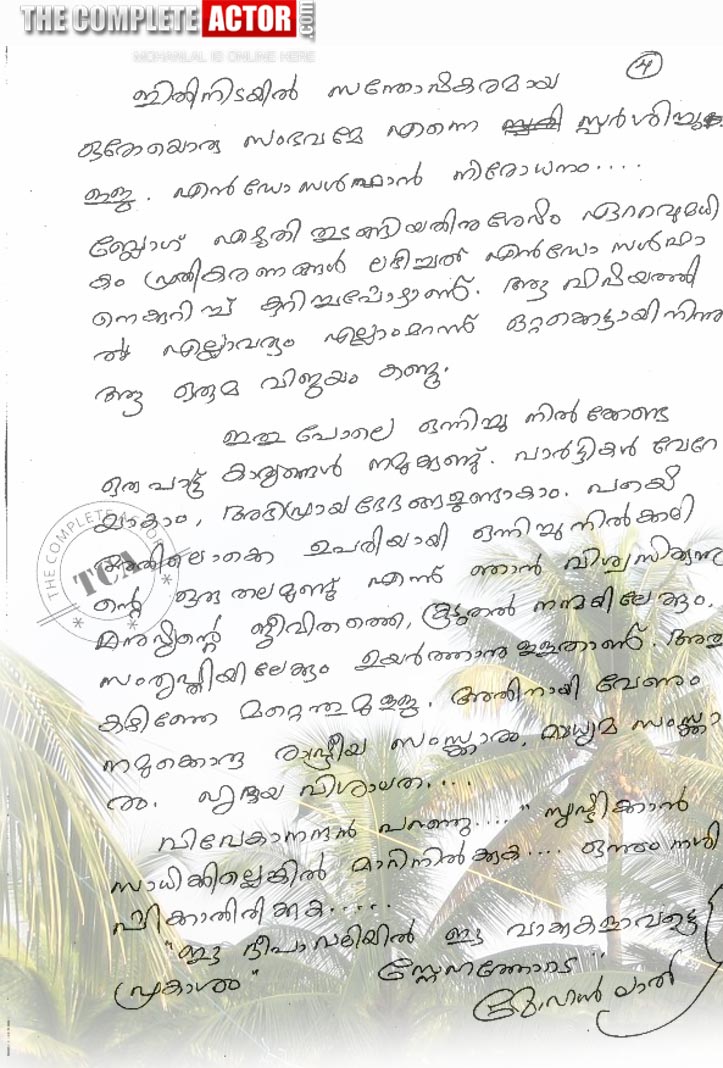 THE COMPLETE ACTOR.com
MOHANLAL IS ONLINE HERE
4
ഇതിനിടയിൽ സന്തോഷകരമായ
ഒരേയൊരു സംഭവമേ എന്നെ സ്പർശിച്ചു
ള്ളു. എൻഡോസൾഫാൻ നിരോധനം....
ബ്ലോഗ് എഴുതി തുടങ്ങിയതിനുശേഷം ഏററവുമധി
കം പ്രതികരണങ്ങൾ ലഭിച്ചത് എൻഡോസൾഫാ
നെക്കുറിച്ച് കുറിച്ചപ്പോഴാണ്. ആ വിഷയത്തി
ൽ എല്ലാവരും എല്ലാംമറന്ന് ഒറ്റക്കെട്ടായിനിന്നു
ആ ഒരുമ വിജയം കണ്ടു.
ഇതു പോലെ ഒന്നിച്ചു നിൽക്കേണ്ട
ഒരുപാട് കാര്യങ്ങൾ നമുക്കുണ്ട്. പാർട്ടികൾ വേറെ
യാകാം, അഭിപ്രായഭേദങ്ങളുണ്ടാകാം. പക്ഷെ
അതിലൊക്കെ ഉപരിയായി ഒന്നിച്ചുനിൽക്കലി
ന്റെ ഒരു തലമുണ്ട് എന്ന് ഞാൻ വിശ്വസിക്കുന്നു
മനുഷ്യന്റെ ജീവിതത്തെ, കൂടുതൽ നന്മയിലേക്കും,
സംതൃപ്തിയിലേക്കും ഉയർത്താനുള്ളതാണ്. അതു
കഴിഞ്ഞേ മറ്റെന്തുമുള്ളു. അതിനായി വേണം
നമുക്കൊരു രാഷ്ട്രീയ സംസ്ക്കാരം, മാധ്യമ സംസ്ക്കാ
രം. ഹൃദയ വിശാലത....
വിവേകാനന്ദൻ പറഞ്ഞു...." സൃഷ്ടിക്കാൻ
സാധിക്കില്ലെങ്കിൽ മാറിനിൽക്കുക.... ഒന്നും നശി
പ്പിക്കാതിരിക്കുക.....
"ഈ ദീപാവലിയിൽ ഈ വാക്കുകളാവട്ടെ
പ്രകാശം" സ്നേഹത്തോടെ
മോഹൻലാൽ
THE COMPLETE ACTOR
TCA